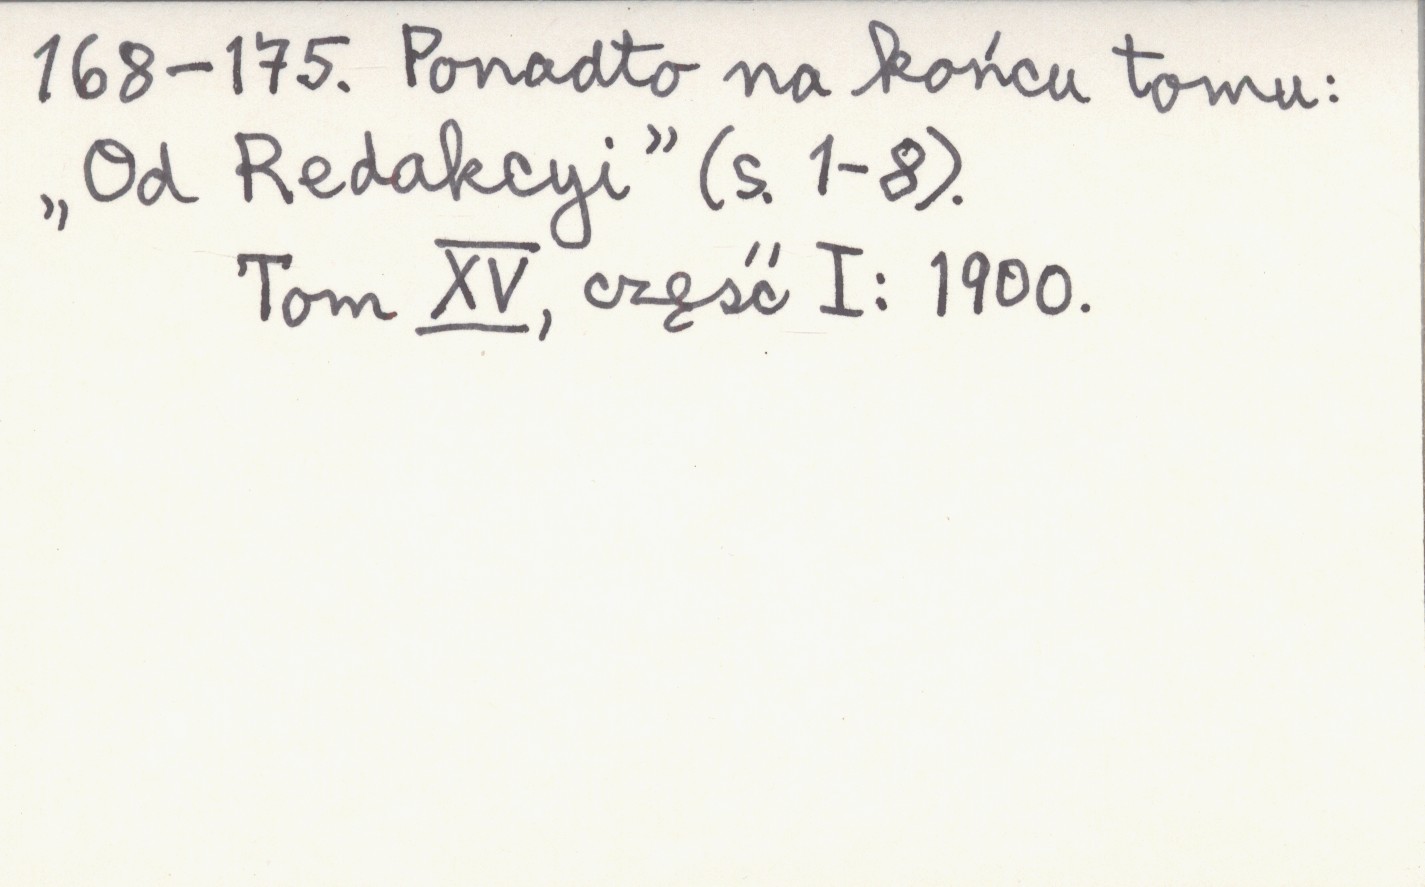 168–175. Ponadto na końcu tomu:
„Od Redakcyi” (s. 1–8).
Tom XV, część I: 1900.